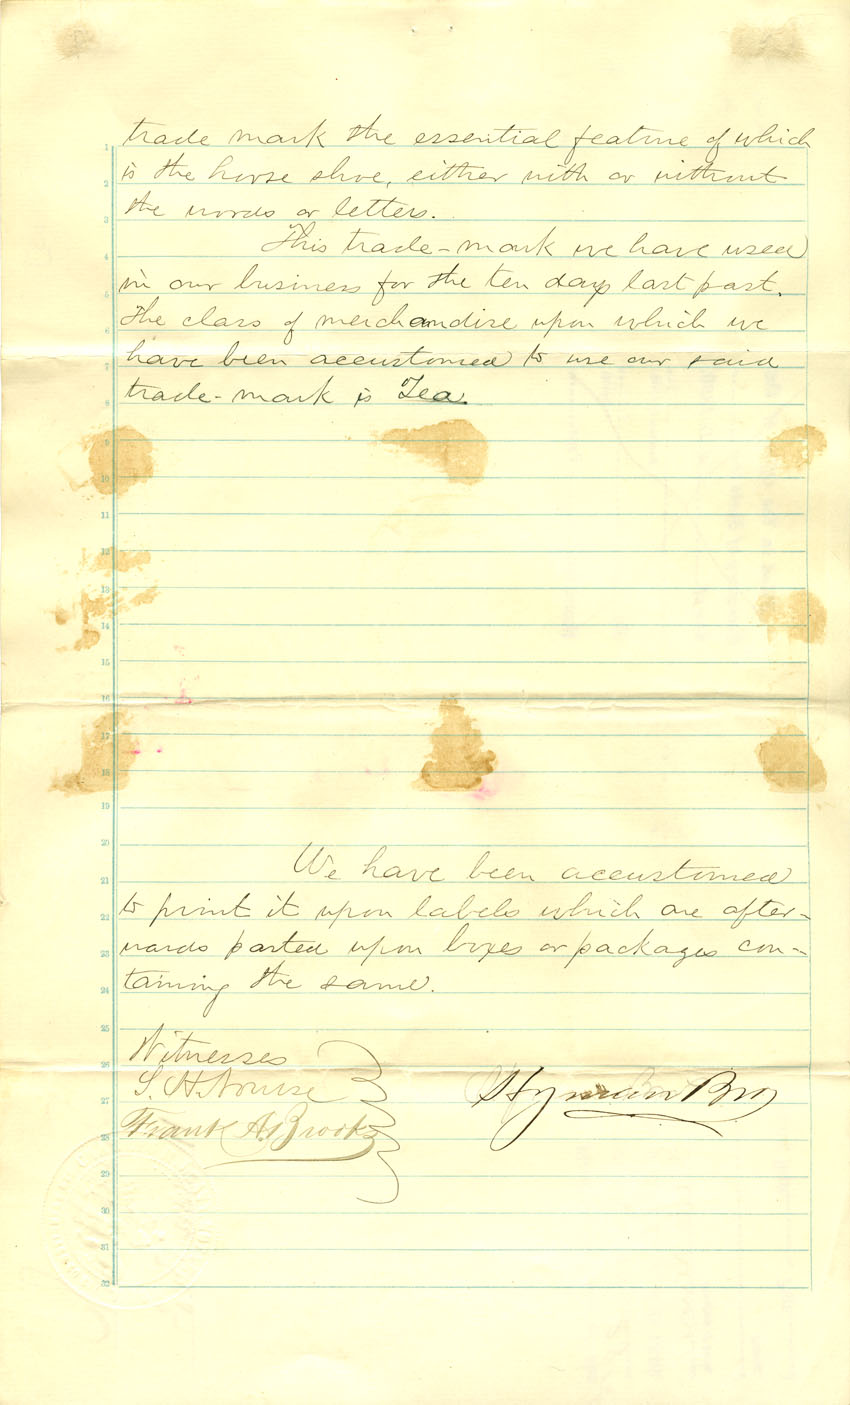 trade mark the essential feature of which
is the horse shoe, either with or without
the words or letters.
This trade-mark we have used
in our business for the ten days last past.
The class of merchandise upon which we
have been accustomed to use our said
trade-mark is Tea.
We have been accustomed
to print it upon labels which are after-
wards pasted upon boxes or packages con-
taining the same.
Witnesses
S. H. Nourse
Frank A. Brooks
Hyman Bro
1
2
3
4
5
6
7
8
9
10
11
12
13
14
15
16
17
18
19
20
21
22
23
24
25
26
27
28
29
30
31
32